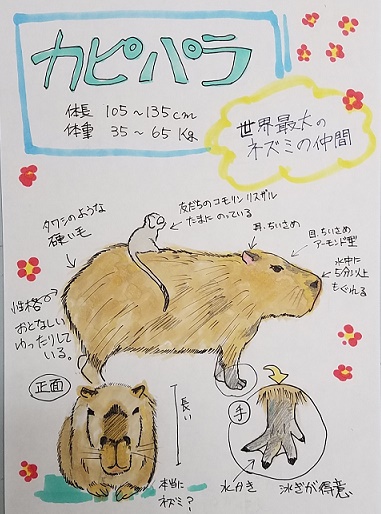 カピパラ
体長 105～135cm
体重 35～65Kg
世界最大の
ネズミの仲間
タワシのような
硬い毛
友だちのコモンリスザル
たまにのっている
耳:ちいさめ
目:ちいさめ
アーモンド型
水中に
5分以上
もぐれる
性格
おとなしい
ゆったりして
いる。
正面
長い
本当に
ネズミ?
手
水かき
泳ぎが得意